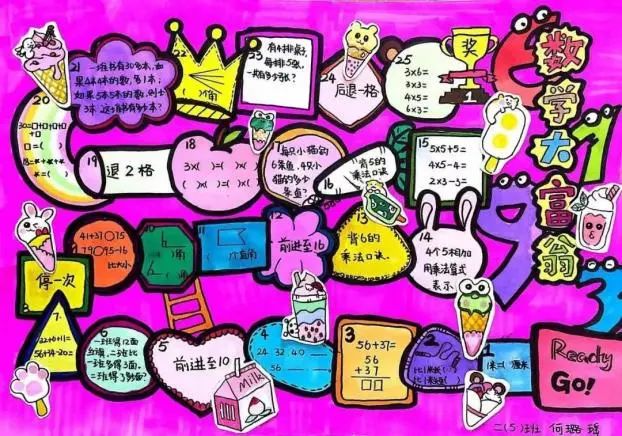 数学大富翁
21
一班书有30多本,如
果4本4本的数,多1本;
如果5本5本的数,
3本
22
()角
23
有4排桌子,
每排5张,
一共有多少张?
24
后退一格
25
3×6=
3×3=
4×5=
6×3=
奖
1
20
19
退2格
18
3×( )=( )×( )=( )
17
每只小猫钓
6条鱼,4只小
猫钓多少
条鱼?
16
背5的
乘法口诀
15
5×5+5=
4×5-4=
2×3-3=
停一次
11
41+37○75
79○95-16
比大小
10
( )角
9
( )个直角
12
前进至16
13
背6的
乘法口诀.
14
4个5相加
用乘法算式
表示.
7.
22+0+11=
56+14-20=
6
一班得12面
红旗,二班比
一班多得3面,
二班得了多少面?
5
前进至10
Milk
4
24 32 40
56
3
56+37=
56
+37
□□
2
1
1米=( )厘米
Ready
Go!
二(5)班 何璐瑶